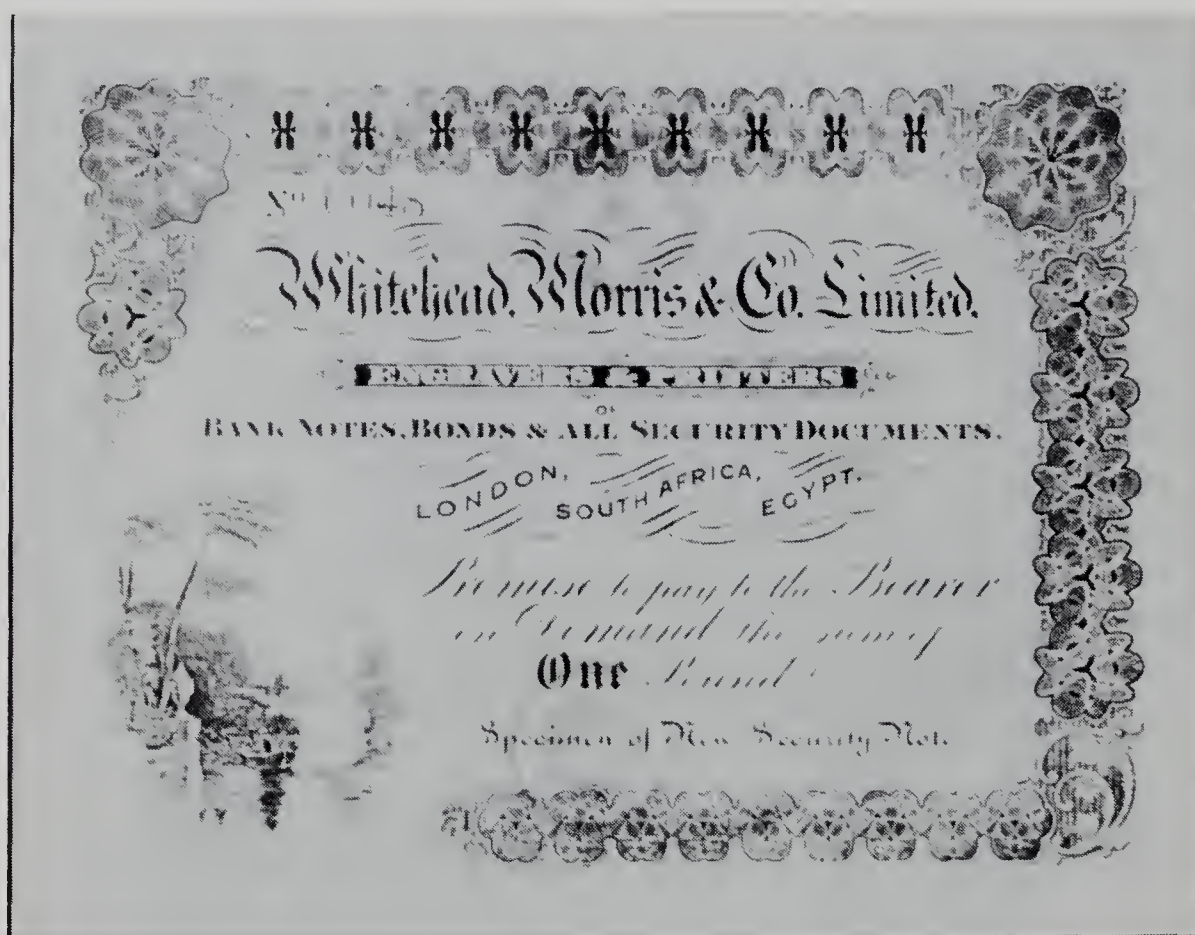 Whitehead, Morris & Co. Limited.
ENGRAVERS & PRINTERS
OF
BANK NOTES, BONDS & ALL SECURITY DOCUMENTS.
LONDON, SOUTH AFRICA, EGYPT.
Promise to pay to the Bearer
on Demand the sum of
One Pound
Specimen of New Security Note